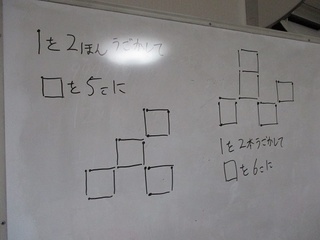 1を2ほんうごかして
□を5こに
1を2本うごかして
□を6こに